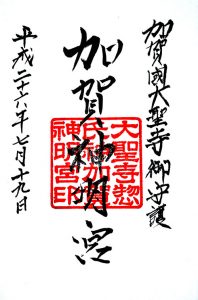 加賀國大聖寺御守護
加賀神明宮
大聖寺惣
氏神加賀
神明宮印
平成二十六年七月十九日